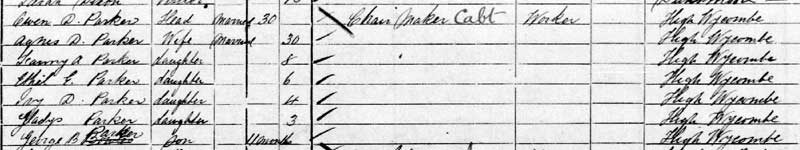 Owen D. Parker Head Married 30 Chair Maker Cabt Worker High Wycombe
Agnes D. Parker Wife Married 30 High Wycombe
Fanny A Parker daughter 8 High Wycombe
Ethel E. Parker daughter 6 High Wycombe
Ivy D. Parker daughter 4 High Wycombe
Gladys Parker daughter 3 High Wycombe
George B Parker Son 11 months High Wycombe